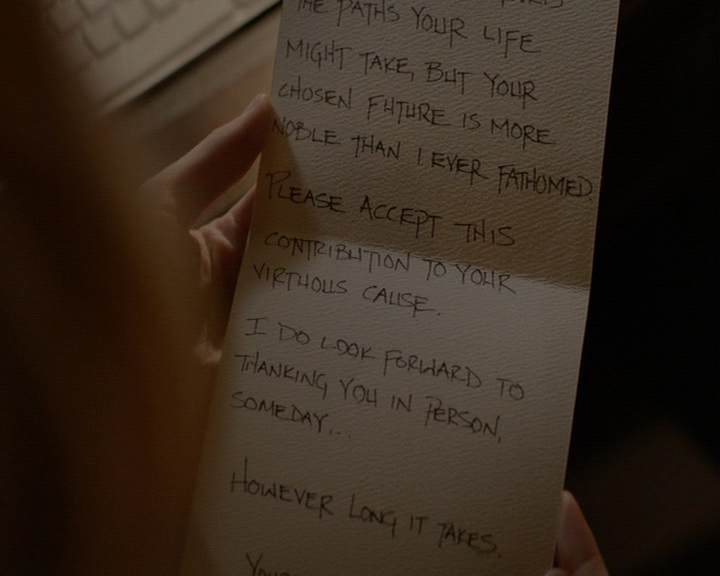 THE PATHS YOUR LIFE
MIGHT TAKE, BUT YOUR
CHOSEN FUTURE IS MORE
NOBLE THAN I EVER FATHOMED.
PLEASE ACCEPT THIS
CONTRIBUTION TO YOUR
VIRTUOUS CAUSE.
I DO LOOK FORWARD TO
THANKING YOU IN PERSON,
SOMEDAY...
HOWEVER LONG IT TAKES.